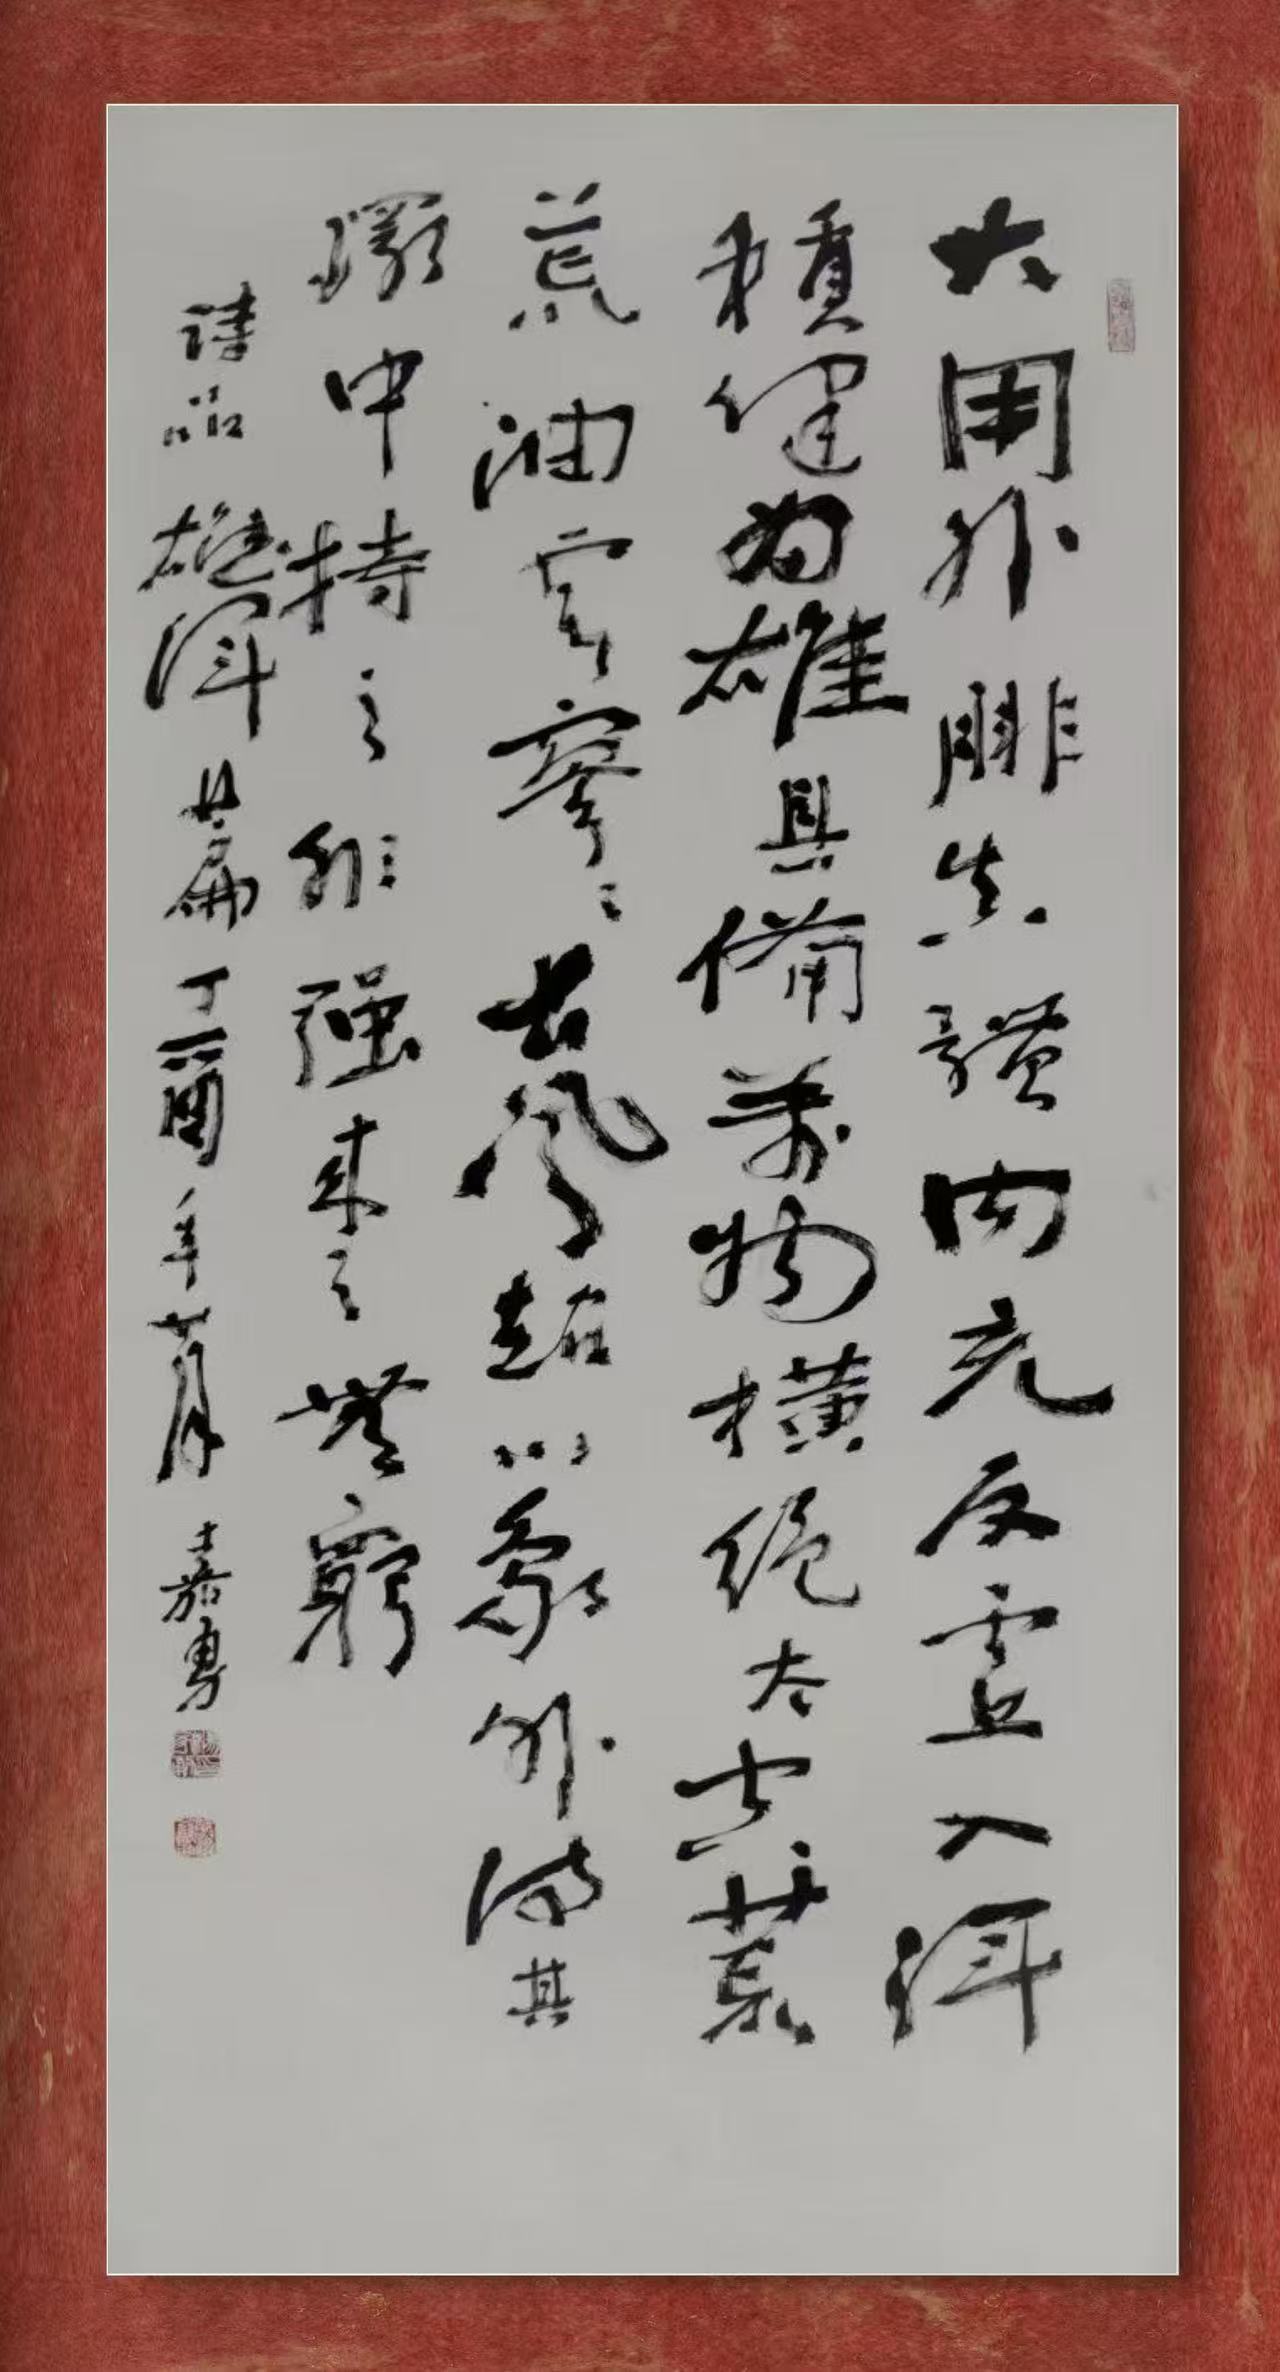 大用外腓真體内充反虚入渾
積健为雄具備萬物横絕太空荒
荒油雲寥〻長風超以象外得其
環中持之非强来之無窮
詩品雄渾篇丁酉年七月嘉勇